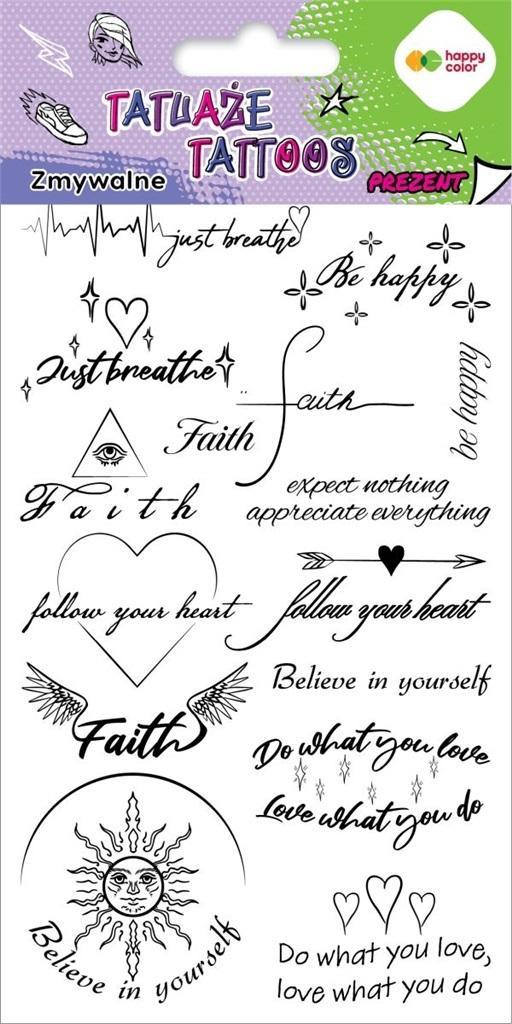 happy
color
TATUAŻE
TATTOOS
Zmywalne
PREZENT
just breathe
Be happy
Just breathe
faith
be happy
Faith
Faith
expect nothing
appreciate everything
follow your heart
follow your heart
Believe in yourself
Faith
Do what you love
Love what you do
Believe in yourself
Do what you love,
love what you do